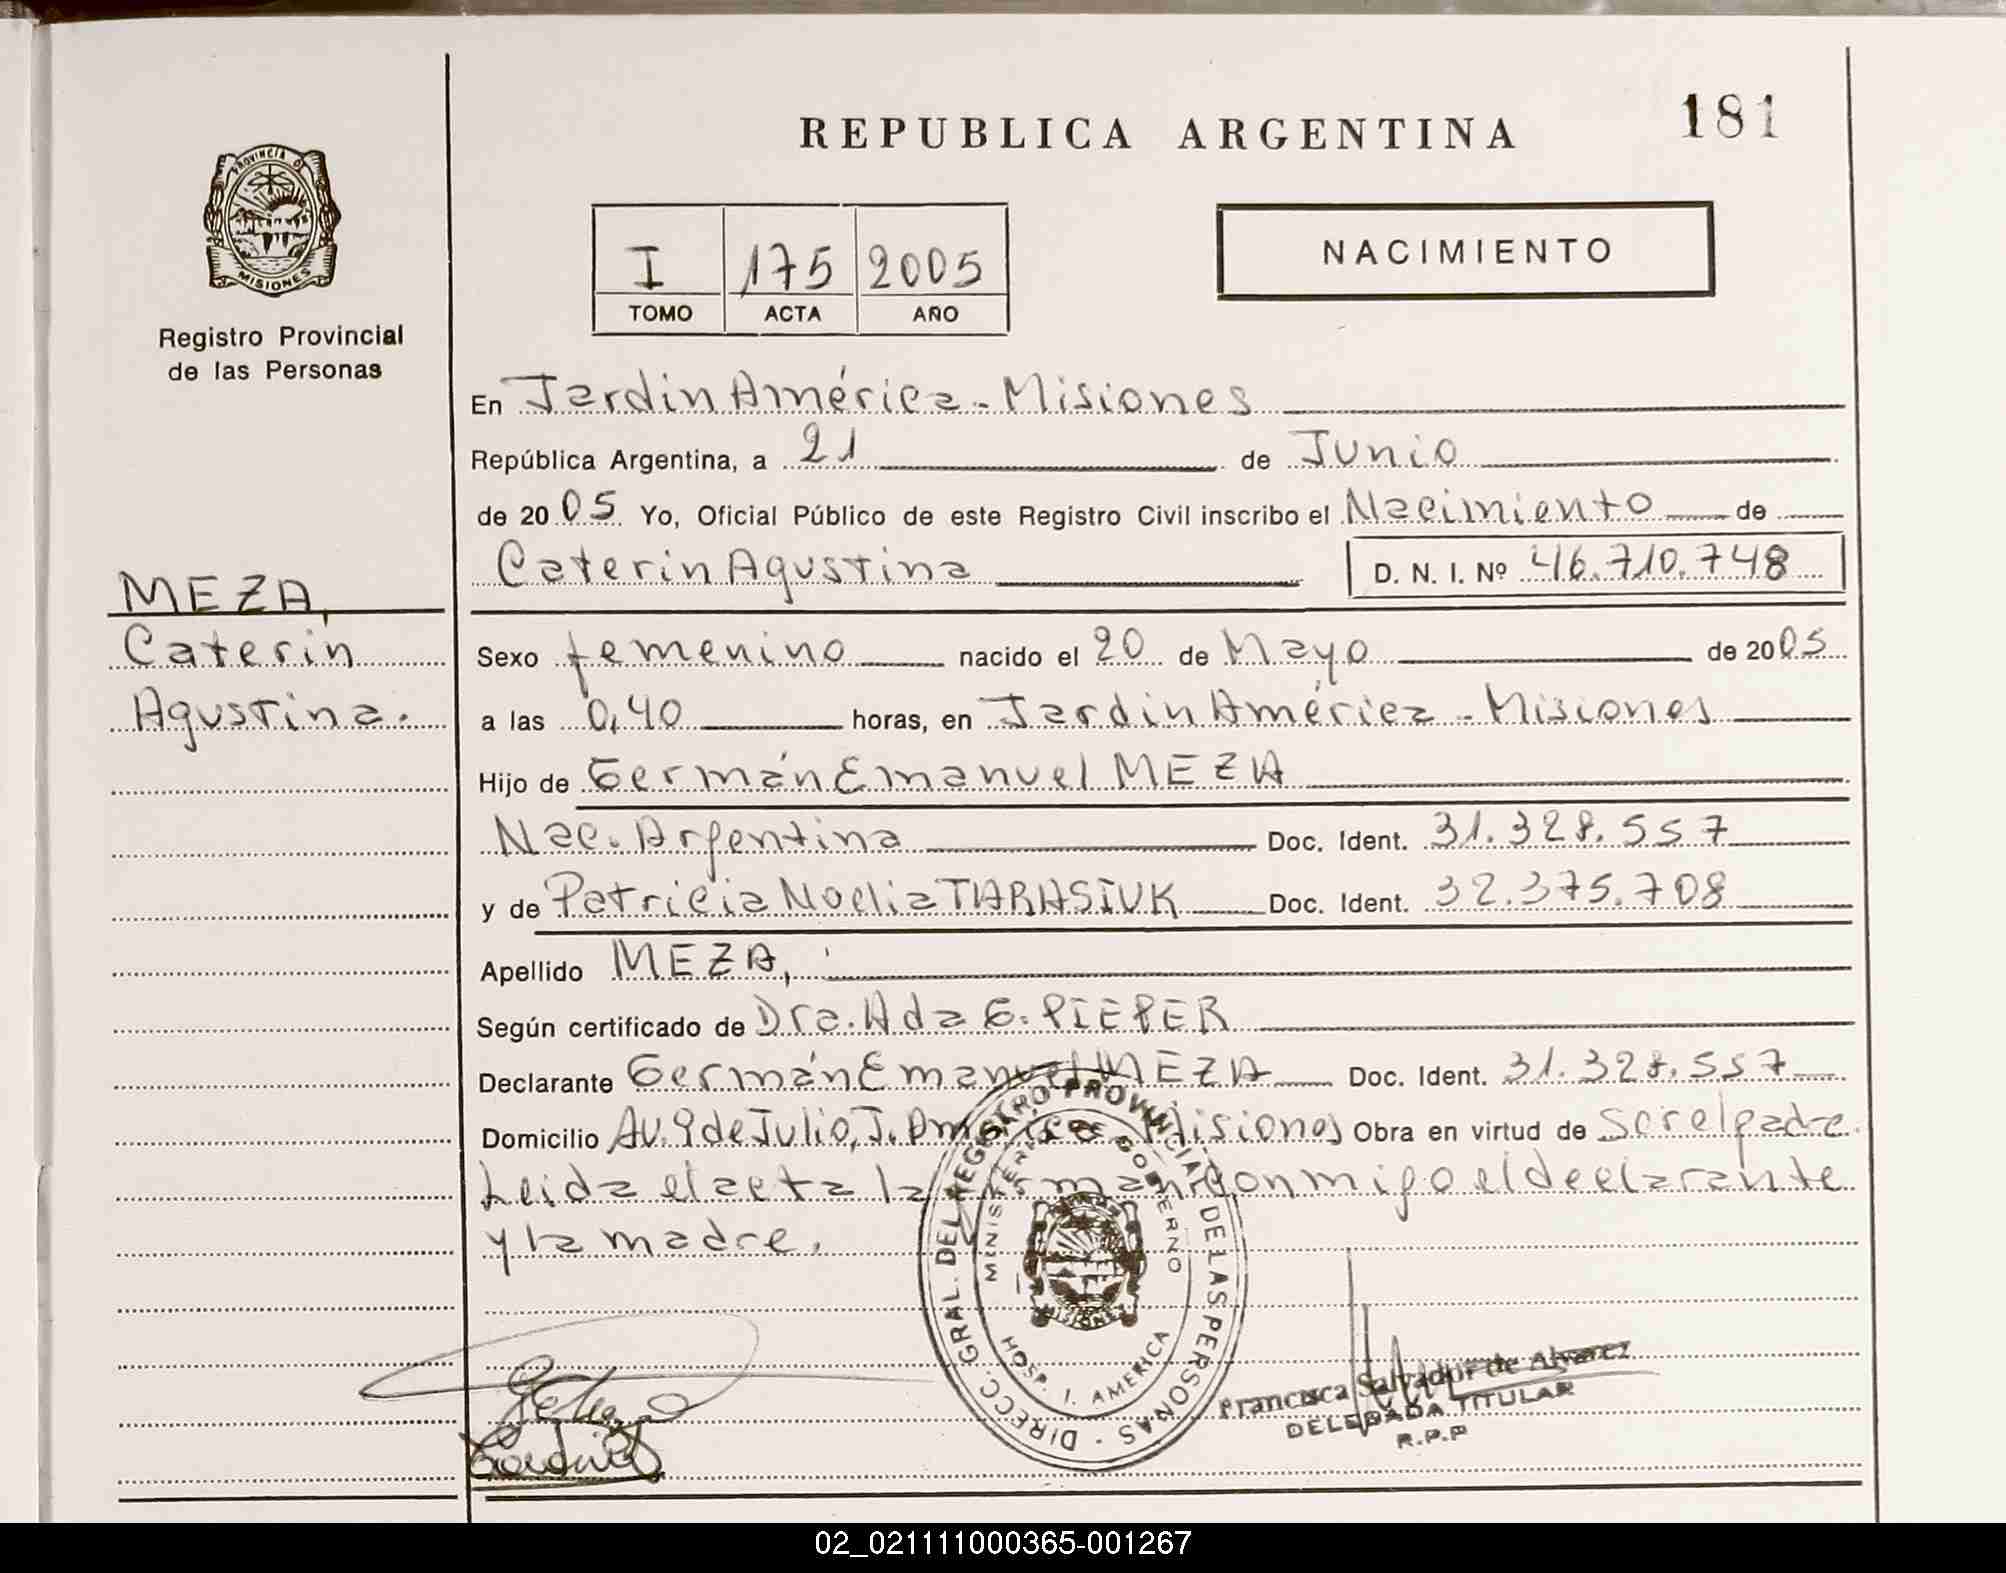 REPUBLICA ARGENTINA
181
PROVINCIA DE
MISIONES
Registro Provincial
de las Personas
I 175 2005
TOMO ACTA AÑO
NACIMIENTO
En Jardín América - Misiones
República Argentina, a 21 de Junio
de 2005 Yo, Oficial Público de este Registro Civil inscribo el Nacimiento de
Caterin Agustina D. N. I. Nº 46.710.748
MEZA,
Caterin
Agustina.
Sexo femenino nacido el 20 de Mayo de 2005
a las 0,40 horas, en Jardín América - Misiones
Hijo de Germán Emanuel MEZA
Nac. Argentina Doc. Ident. 31.328.557
y de Patricia Noelia TARASIUK Doc. Ident. 32.375.708
Apellido MEZA,
Según certificado de Dra. Ada G. PIEPER
Declarante Germán Emanuel MEZA Doc. Ident. 31.328.557
Domicilio Av. 9 de Julio, J. América - Misiones Obra en virtud de Ser el padre.
Leida el acta la firman conmigo el declarante
y la madre.
DIRECC. GRAL. DEL REGISTRO PROVINCIAL DE LAS PERSONAS
MINISTERIO DE GOBIERNO
MISIONES
HOSP. I. AMERICA
Francisca Salvador de Alvarez
DELEGADA TITULAR
R.P.P
02_021111000365-001267